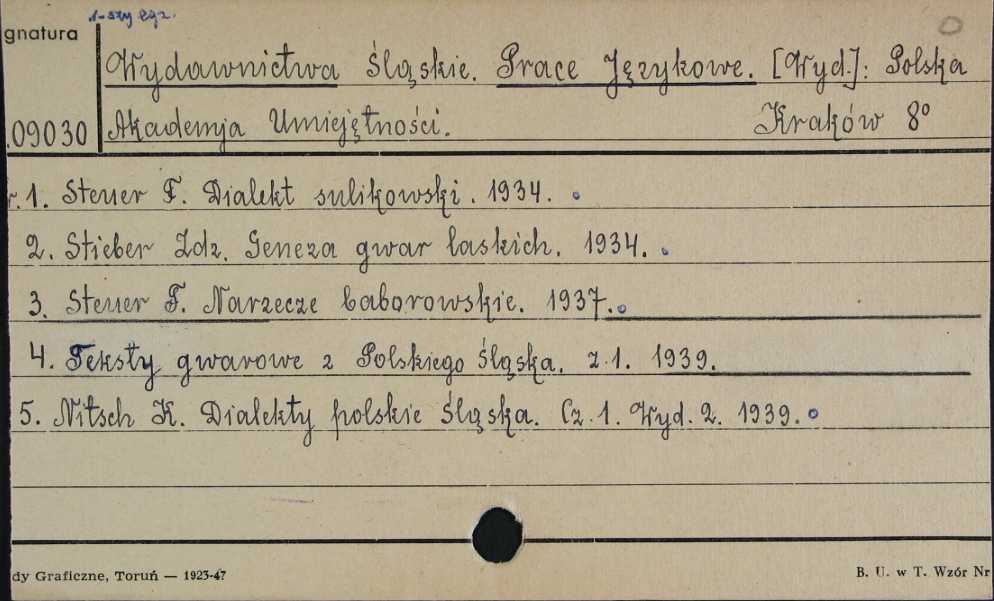 1-szy egz.
gnatura
Wydawnictwa Śląskie. Prace Językowe. [Wyd.]: Polska
09030 Akademja Umiejętności. Kraków 8°
r. 1. Steuer F. Dialekt sulikowski. 1934.
2. Stieber Zdz. Geneza gwar laskich. 1934.
3. Steuer F. Narzecze baborowskie. 1937.
4. Teksty gwarowe z Polskiego Śląska. z. 1. 1939.
5. Nitsch K. Dialekty polskie Śląska. Cz. 1. Wyd. 2. 1939.
dy Graficzne, Toruń — 1923-47
B. U. w T. Wzór Nr